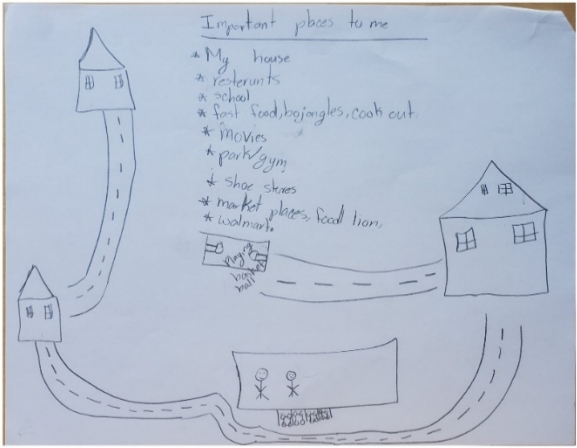 Important places to me
* My house
* resterunts
* school
* fast food, bojangles, cook out
* movies
* park/gym
* shoe stores
* market places, food lion,
* walmart.
Playing
basket
ball